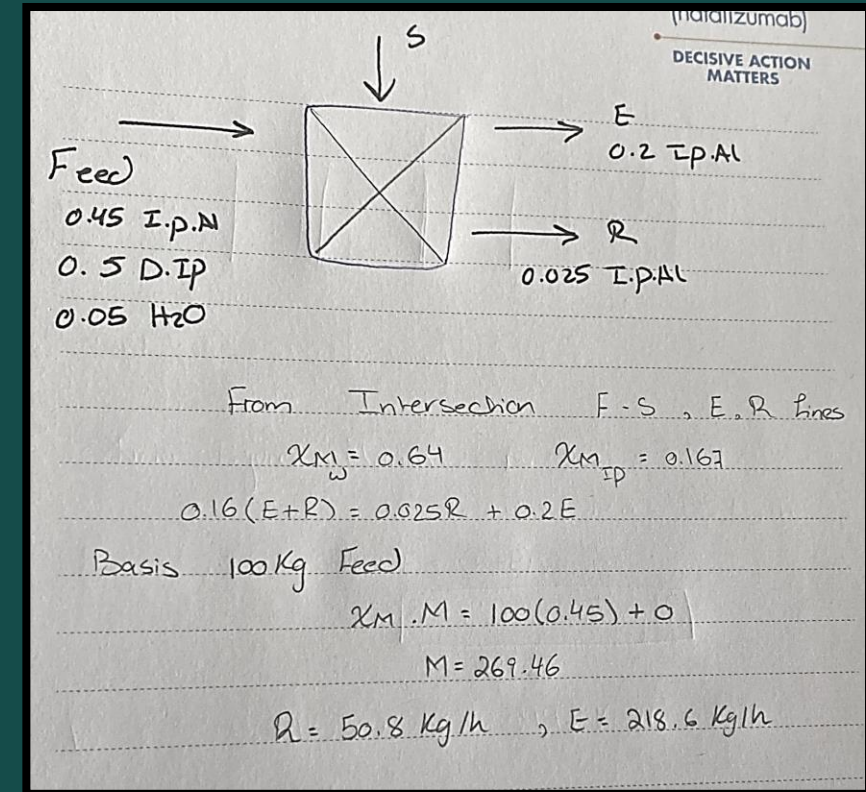 (natalizumab)
DECISIVE ACTION
MATTERS
S
E
0.2 Ip.Al
Feed
0.45 I.p.Al
0.5 D.IP
0.05 H2O
R
0.025 I.p.Al
From Intersection F-S, E,R lines
XMw = 0.64 XMIP = 0.167
0.16(E+R) = 0.025R + 0.2E
Basis 100 Kg Feed
XM.M = 100(0.45) + 0
M = 269.46
R = 50.8 Kg/h , E = 218.6 Kg/h